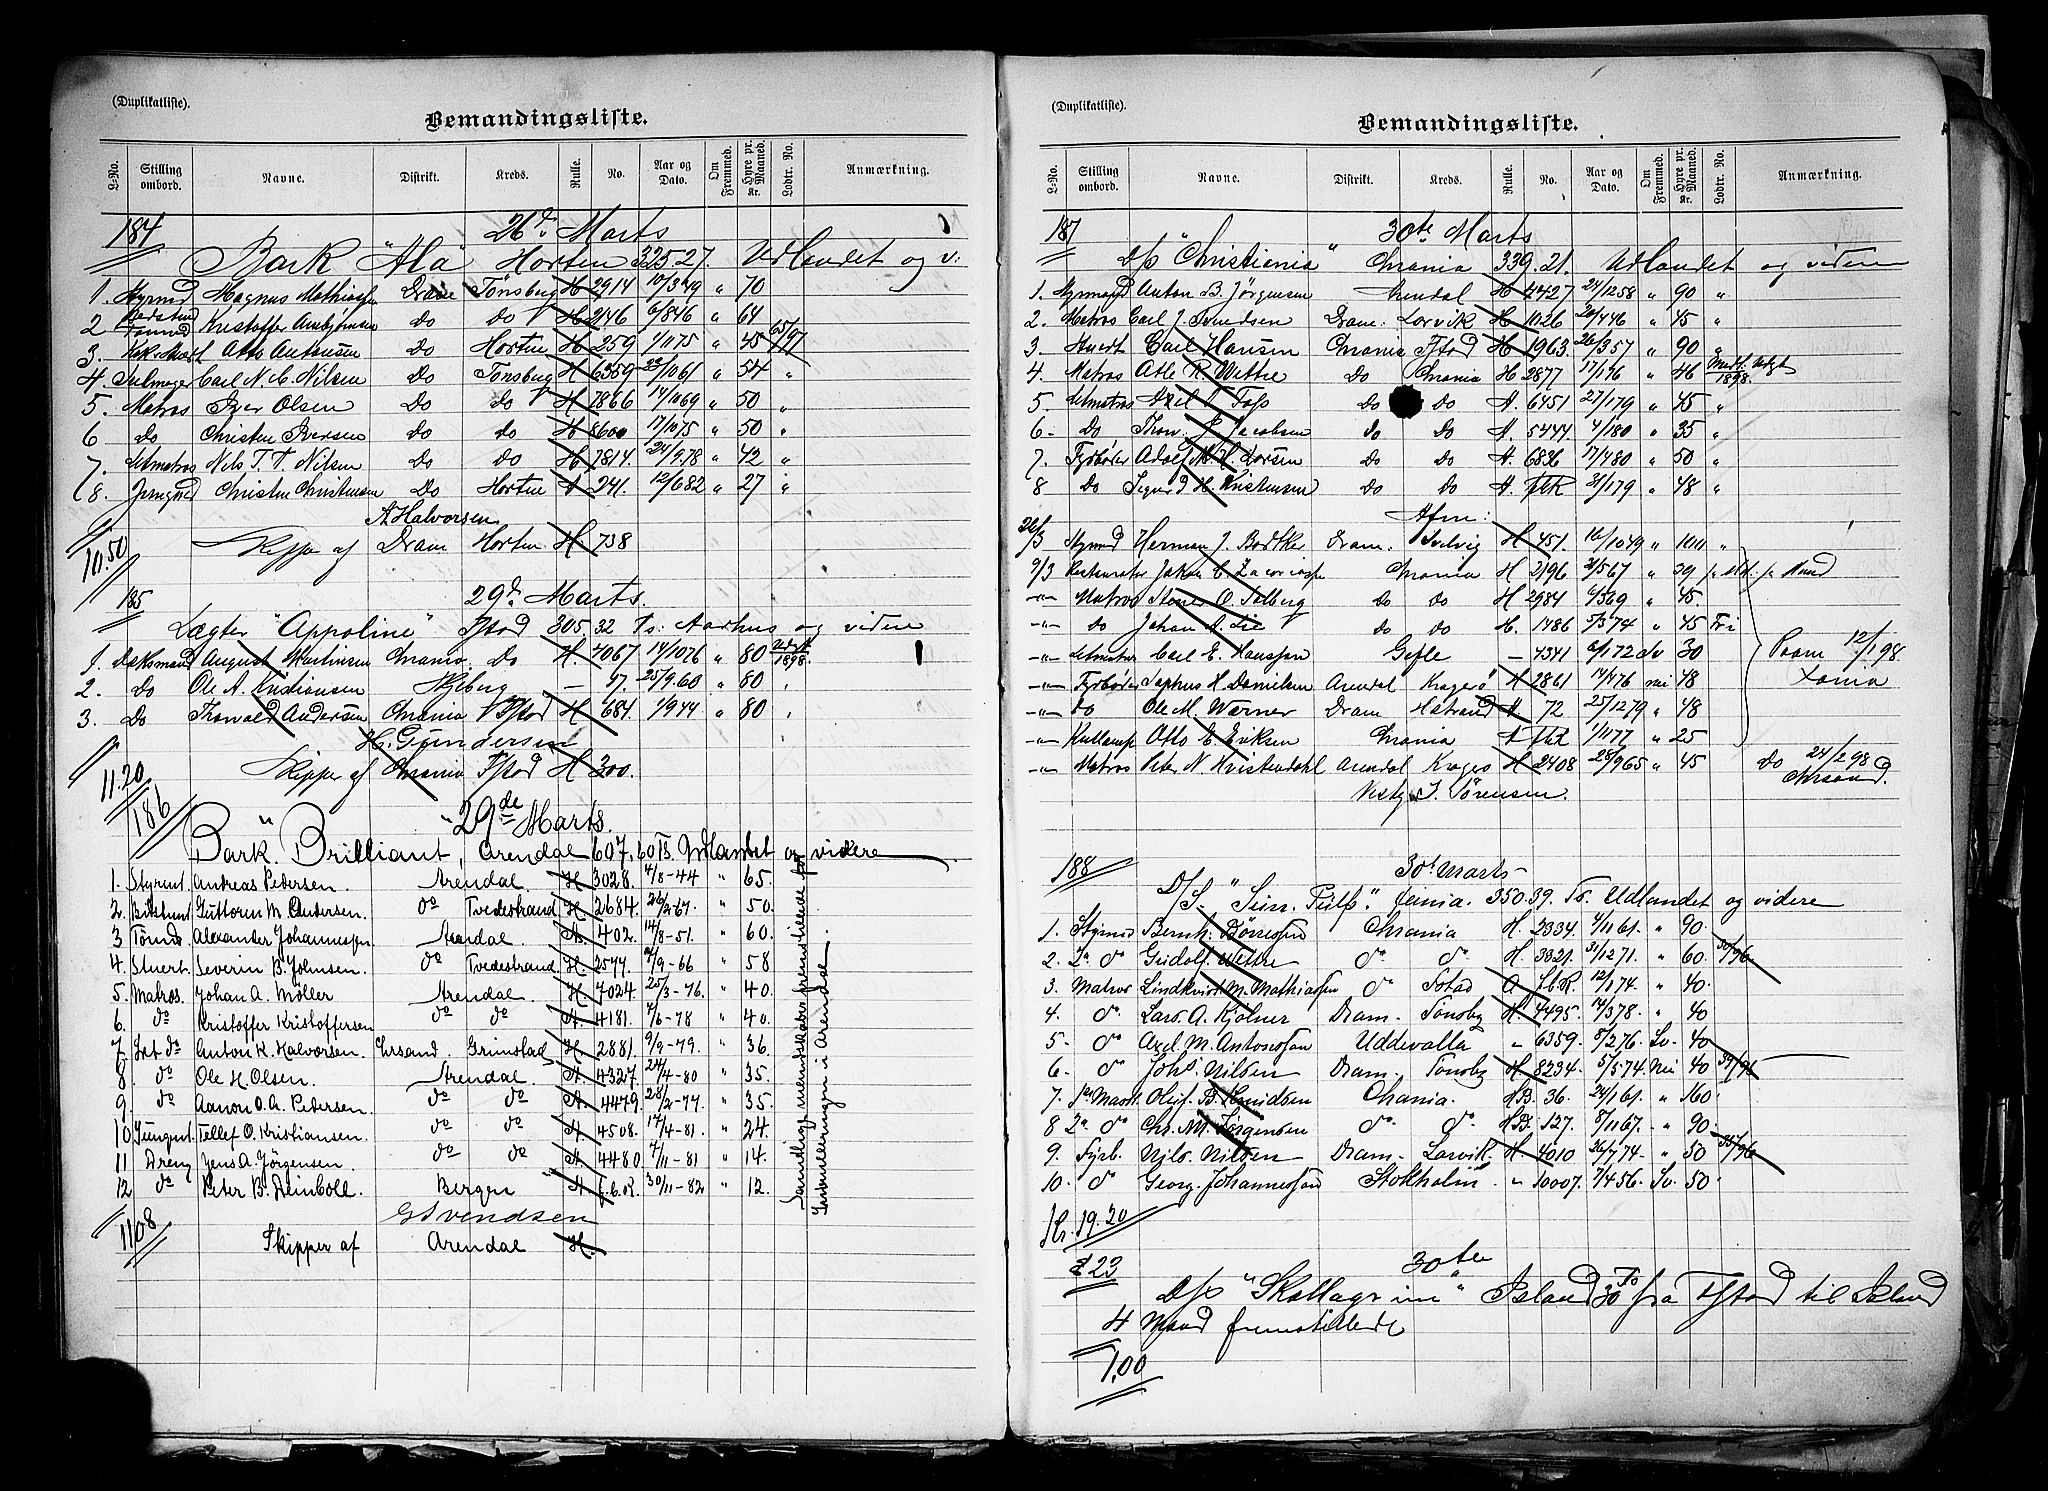 (Duplikatliste).
Bemandingsliste.
L-No. Stilling ombord. Navne. Distrikt. Kreds. Rulle. No. Aar og Dato. Om Fremmed. Hyre pr. Maaned. Kr. Lodtr. No. Anmærkning.
184 26de Marts
Bark "Ala" Horten 325.27. Udlandet og v:
1. Styrmd Magnus Mathiassen Dram Tönsberg H 2914 10/3 49 " 70
2 Kristoffer Do Do H 2146 6/8 46 " 64
3. Otto Antonsen Do Horten H 259 1/11 75 " 45 65/97
4. Seilmager Carl N. C. Nilsen Do Tönsberg H 6359 22/10 61 " 54 "
5. Matros Iver Olsen Do Do H 7866 14/10 69 " 50 "
6 Do Christen Iversen Do Do H 8600 17/10 75 " 50 "
7. Letmatros Nils T. T. Nilsen Do Do H 7814. 24/9 78 " 42 "
8. Jungmd Christen Christensen Do Horten A 241. 12/6 82 " 27 "
A Halvorsen
Skipper af Dram Horten H 738
10.50
185 29de Marts.
Lægter "Appoline" Fstad 305.32 Ts: Aarhus og videre
1. Dæksmand August Martinsen Chrania Do H. 4067 14/10 76 " 80 Udgt 1898.
2. Do Ole A. Kristiansen — 97. 25/9.60 " 80 "
3. Do Thorvald Andersen Chrania Fstad H 684. 1/9 44 " 80 "
H. Gundersen
Skipper af Chrania Fstad H 300.
11.20
186 29de Marts.
Bark "Brilliant", Arendal 607,60 Ts. Udlandet og videre
1. Styrmt. Andreas Pedersen. Arendal. H. 3028. 4/8-44 " 65.
2. Guttorm M. Andersen. do Tvedestrand H. 2684. 26/2-67. " 50.
3 Tømd. Alexander Johannessen Arendal. A. 402. 14/8-51. " 60.
4. Stuert. Severin B. Johnsen. do Tvedestrand H. 2577. 9/9-66 " 58
5. Matros. Johan A. Möller Arendal. H. 7024. 25/3-76. " 40.
6. do Kristoffer Kristoffersen do do A. 4181. 7/6-78 " 40.
7. Let do Anton K. Halvorsen. Chrsand. Grimstad H. 2881. 9/9-79. " 36.
8. do Ole H. Olsen. Arendal A. 4327. 24/4-80 " 35.
9. do Aanon O. A. Pedersen. do do A. 4479. 28/2-77. " 35.
10. Jungmt. Tellef O. Kristiansen. do do A. 4508. 17/4-81. " 24.
11 Dreng Jens A. Jörgensen. do do A. 4480. 7/11-81 " 14.
12 do Peter B. Deinboll. Bergen A. f.b.R. 30/11-82 " 12.
Samtlige mandskaber fremstillede for Indrulleringen i Arendal.
G Svendsen
Skipper af Arendal H.
11.08
(Duplikatliste).
Bemandingsliste.
L-No. Stilling ombord. Navne. Distrikt. Kreds. Rulle. No. Aar og Dato. Om Fremmed. Hyre pr. Maaned. Kr. Lodtr. No. Anmærkning.
187 30te Marts
D/S "Christiania" Chrania 339.21. Udlandet og videre
1. Styrmand Anton B. Jörgensen Arendal H 4427 24/12 58 " 90 "
2. Matros Carl J. Svendsen Dram: Larvik H 1126 20/4 46 " 45 "
3. Stuert Carl Hansen Chrania Fstad H 1963. 26/3 57 " 90 "
4. Matros Atle R. Wettre Do Chrania H 2877 17/1 76 " 46 Udgt 1898.
5. Letmatros Axel T. Foss Do Do A. 6451 27/1 79 " 45 "
6- Do Thorv. J. Jacobsen Do Do A. 5444. 4/1 80 " 35 "
7. Fyrbøter Adolf M. H. Larsen Do Do A. 6836 17/4 80 " 50 "
8 Do Sigurd H. Kristensen Do Do A. fbR 21/1 79 " 48 "
Afm:
26/3 Styrmd Herman J. Bødtker Dram. Svelvig H 451. 16/10 49 " 100 "
9/3 Restauratør Jakob C. Chrania H 2196 21/5 67 " 29
-"- Matros O. Solberg Do Do H 2984 6/5 69 " 45.
-"- do Johan A. Lie Do Do H. 1486 5/3 74 " 45 Fri
-"- Letmatros Carl E. Hansson Gefle — 4341 6/1 72 Sv 30
-"- Fyrbøter Sophus H. Danielsen Arendal Kragerö H 2861 14/4 76 nei 48
-"- Do Ole M. Werner Dram Hstrand A 72 25/12 79 " 48
-"- Kullemp Otto E. Eriksen Chrania A fbR 1/11 77 " 25
Paam 12/1 98. Xania
-"- Matros Peter N. Hvistendahl Arendal Kragerö H 2408 28/9 65 " 45 Do 24/2 98 Chrsand.
J. Sørensen.
188 30te Marts
D/S. "Sirn. Tulp." Xania. 350.39. Ts. Udlandet og videre
1. Styrmd Bernh. Börresen Chrania H. 2334 4/11 61. " 90.
2. 2n do Gudolf Wettre do do H. 3321. 31/12 71. " 60. 30/96
3. Matros Lindkvist M. Mathiassen do Fstad A f.b.R. 12/1 74. " 40.
4. do Lars A. Kjølner Dram. Tönsbg H. 4495. 14/3 78. " 40
5- do Axel M. Antonsson Uddevalla " 6359. 8/2 76. Sv. 40
6. do Johs. Nilsen Dram. Tönsbg H 8234. 5/5 74. Nei 40 39/96
7. 1ste Mask. Oluf. B. Knudsen Chrania. HB. 36. 24/1 61. " 160.
8 2n do Chr. M. Jörgensen do do HB. 127. 8/11 67. " 90.
9. Fyrb. Nils. Nilsen Dram. Larvik. H 4010 26/7 74. " 50 35/96
10. do Georg. Johannessen Stokholm " 10007. 7/4 56. Sv. 50.
Kr. 19.20
£ 23 30te
D/S "Skallagrim" Island 30 To fra Fstad til Island
4 Mand fremstillede
1,00